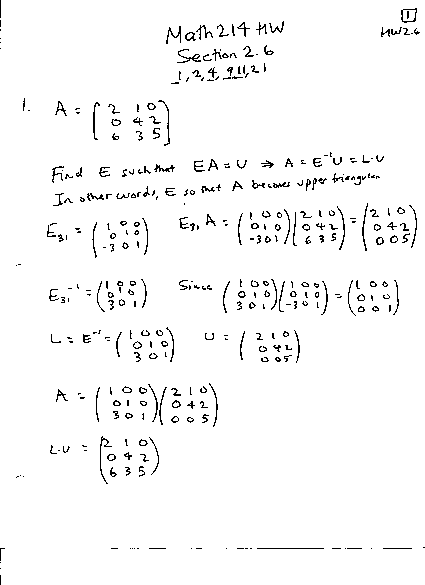 Math 214 HW
1
HW2.6
Section 2.6
1, 2, 4, 9, 11, 21
1. A = ( 2 1 0
0 4 2
6 3 5 )
Find E such that EA = U ⇒ A = E⁻¹U = L·U
In other words, E so that A becomes upper triangular
E₃₁ = ( 1 0 0
0 1 0
-3 0 1 ) E₃₁ A = ( 1 0 0
0 1 0
-3 0 1 ) ( 2 1 0
0 4 2
6 3 5 ) = ( 2 1 0
0 4 2
0 0 5 )
E₃₁⁻¹ = ( 1 0 0
0 1 0
3 0 1 ) Since ( 1 0 0
0 1 0
3 0 1 ) ( 1 0 0
0 1 0
-3 0 1 ) = ( 1 0 0
0 1 0
0 0 1 )
L = E⁻¹ = ( 1 0 0
0 1 0
3 0 1 ) U = ( 2 1 0
0 4 2
0 0 5 )
A = ( 1 0 0
0 1 0
3 0 1 ) ( 2 1 0
0 4 2
0 0 5 )
L·U = ( 2 1 0
0 4 2
6 3 5 )